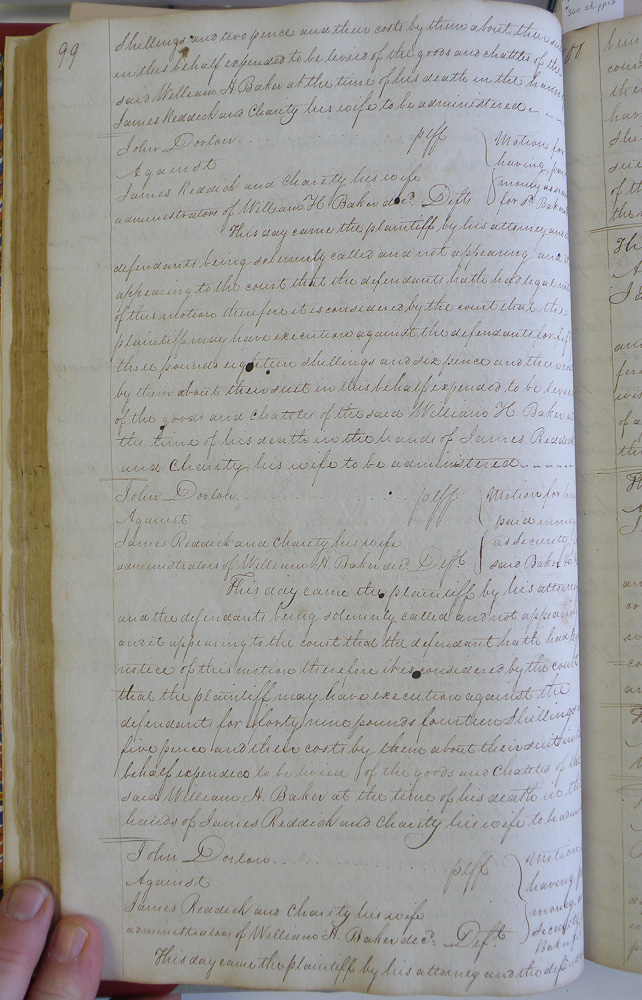 99
Shillings and two pence and their costs by them about their
in this behalf expended to be levied of the goods and chattles of the
said William H Baker at the time of his death in the hands
James Reddick and Charity his wife to be administered
John Dorlon plff
Motion for
Against
having paid
James Reddick and Charity his wife
money as
administrators of William H. Baker decd. Defts
for sd. Baker
This day came the plaintiff by his attorney and
defendants being solemnly called and not appearing and it
appearing to the court that the defendants hath had legal
of this motion therefore it is considered by the court that the
plaintiff may have execution against the defendants for
three pounds eighteen shillings and six pence and their
by them about their suit in this behalf expended to be levied
of the goods and chattles of the said William H. Baker at
the time of his death in the hands of James Reddick
and Charity his wife to be administered
John Dorlon plff
Motion for
Against
paid money
James Reddick and Charity his wife
as security
administrators of William H Baker decd. Deft
said Baker
This day came the plaintiff by his attorney
and the defendants being solemnly called and not appearing
and it appearing to the court that the defendant hath had
notice of this motion therefore it is considered by the court
that the plaintiff may have execution against the
defendant for forty nine pounds fourteen Shillings
five pence and their costs by them about their suit in
behalf expended to be levied of the goods and chattles of
said William H. Baker at the time of his death in the
hands of James Reddick and Charity his wife to be
John Dorlon plff
Motion
Against
having
James Reddick and Charity his wife
money
administrators of William H. Baker decd. Deft.
Baker
This day came the plaintiff by his attorney and the